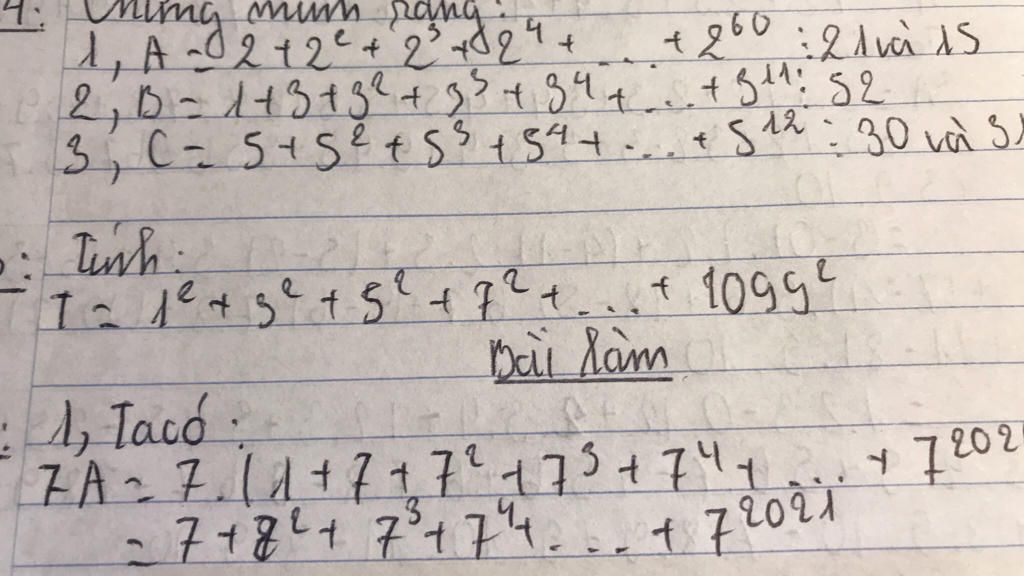 4: Chứng minh rằng:
1, A = 2 + 2² + 2³ + 2⁴ + ... + 2⁶⁰ ⋮ 21 và 15
2, B = 1 + 3 + 3² + 3³ + 3⁴ + ... + 3¹¹ ⋮ 52
3, C = 5 + 5² + 5³ + 5⁴ + ... + 5¹² ⋮ 30 và 31
Tính:
T = 1² + 3² + 5² + 7² + ... + 1099²
Bài làm
1, Ta có:
7A = 7.(1 + 7 + 7² + 7³ + 7⁴ + ... + 7²⁰²
= 7 + 7² + 7³ + 7⁴ + ... + 7²⁰²¹